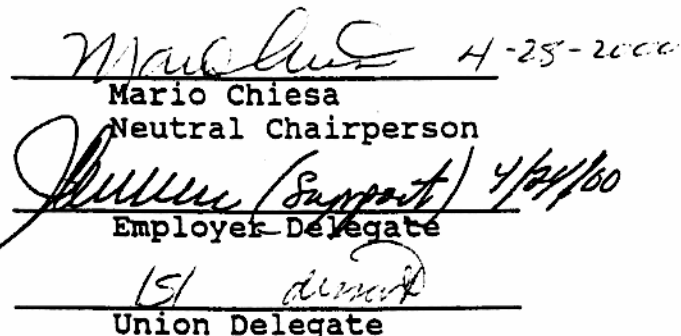 Mario Chiesa 4-28-2000
Mario Chiesa
Neutral Chairperson
(Support)
Employer Delegate
/S/ dissent
Union Delegate